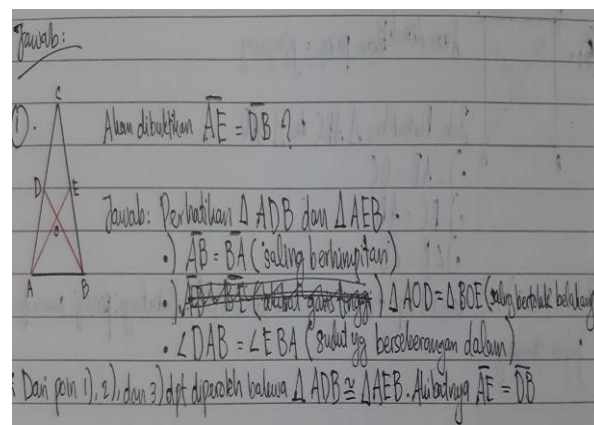 Jawab:
1). Akan dibuktikan AE = DB ?
C
D E
O
A B
Jawab: Perhatikan Δ ADB dan Δ AEB.
•) AB = BA (saling berhimpitan)
•) Δ AOD = Δ BOE (saling bertolak belakang
• ∠DAB = ∠EBA (sudut yg berseberangan dalam)
Dari poin 1), 2), dan 3) dpt diperoleh bahwa Δ ADB ≅ Δ AEB. Akibatnya AE = DB